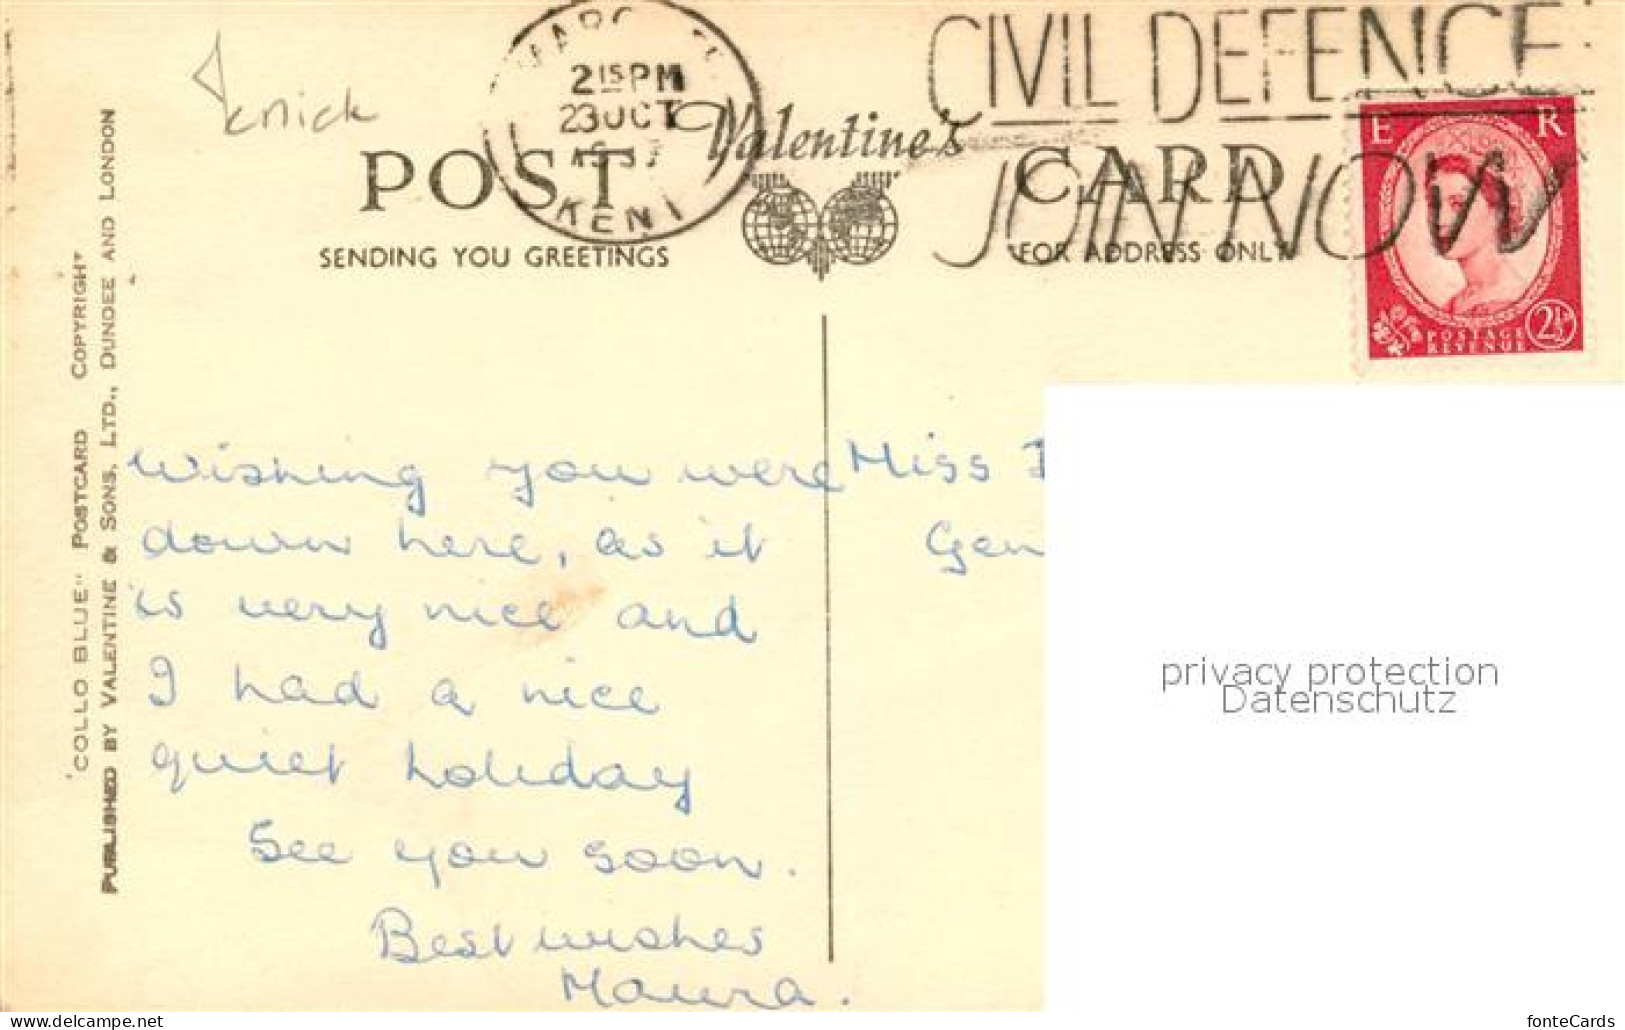 knick
2 15 PM
23 OCT
KENT
CIVIL DEFENCE
JOIN NOW
Valentine's
POST CARD
SENDING YOU GREETINGS
FOR ADDRESS ONLY
E R
POSTAGE
REVENUE
2½
'COLLO BLUE" POSTCARD COPYRIGHT
PUBLISHED BY VALENTINE & SONS, LTD., DUNDEE AND LONDON
Wishing you were
down here, as it
is very nice and
I had a nice
quiet holiday
See you soon.
Best wishes
Maura.
Miss
Gen
privacy protection
Datenschutz
www.delcampe.net
fonteCards